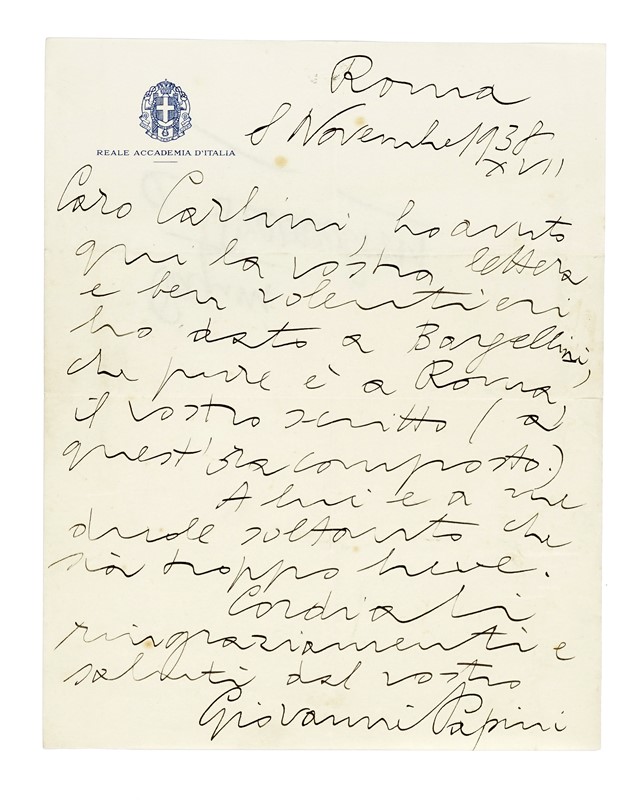 REALE ACCADEMIA D'ITALIA
Roma
8 Novembre 1938
XVII
Caro Carlini, ho avuto
qui la vostra lettera
e ben volentieri
ho dato a Bargellini,
che pure è a Roma
il vostro scritto (a
quest'ora composto.)
A lui e a me
duole soltanto che
sia troppo breve.
Cordiali
ringraziamenti e
saluti dal vostro
Giovanni Papini